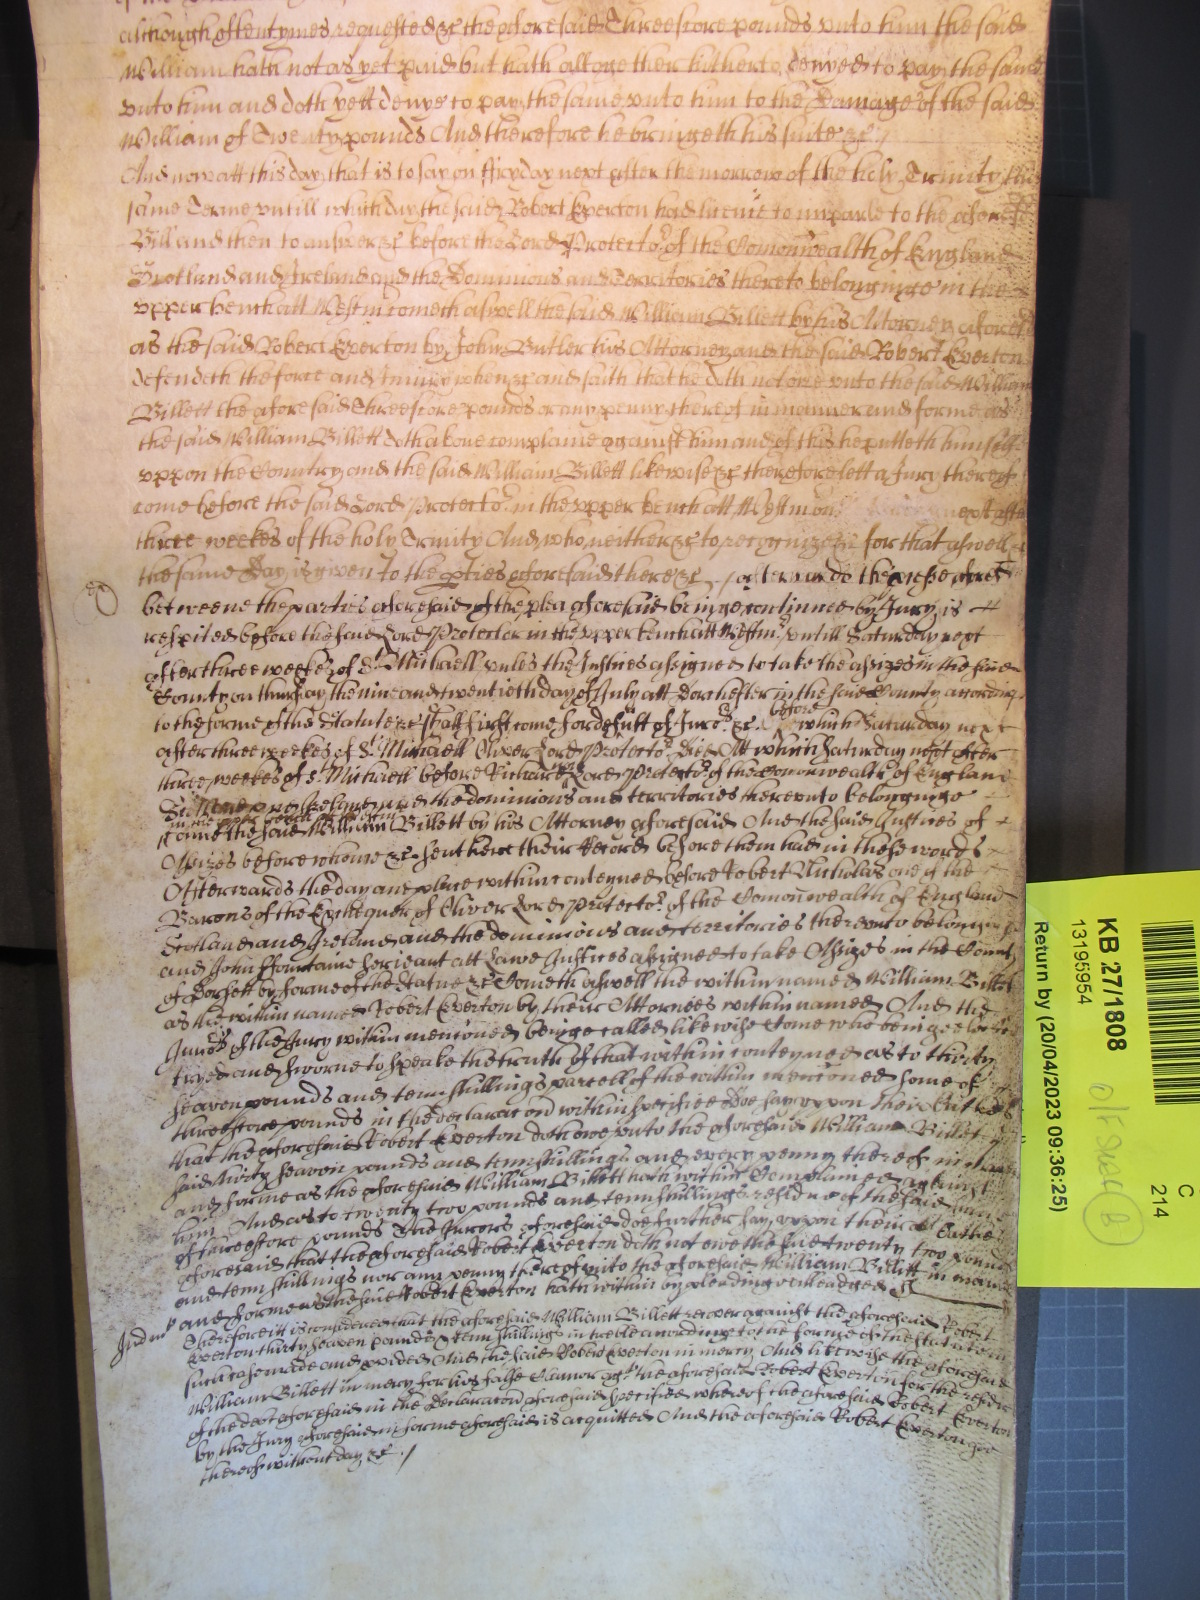 although oftentymes requested &c the aforesaid Threescore pounds vnto him the said
William hath not as yet paid but hath altogether hitherto denyed to pay the same
vnto him and doth yett denye to pay the same vnto him to the Damage of the said
William of Twenty pounds And therefore he bringeth his suite &c /
And now att this day that is to say on ffryday next after the morrow of the holy Trinity this
same Terme vntill which day the said Robert Everton had licence to imparle to the aforesd
Bill and then to answer &c before the Lord Protector of the Comonwealth of England
Scotland and Ireland and the Dominions and Territories thereto belonginge in the
vpper bench att Westm cometh aswell the said William Billett by his Attorney aforesd
as the said Robert Everton by John Butler his Attorney and the said Robert Everton
defendeth the force and Iniury when &c and saith that he doth not owe vnto the said William
Billett the aforesaid Threescore pounds or any penny thereof in manner and forme as
the said William Billett doth above complaine against him and of this he putteth himselfe
vppon the Country and the said William Billett likewise &c therefore lett a Jury thereof
come before the said Lord Protector in the vpper bench att Westmon next after
three weekes of the holy Trinity And who neither &c to recognize &c for that aswell &c
the same Day is given to the pties aforesaid there &c / afterwards the processe aforesd
betweene the parties aforesaid of the plea aforesaid beinge continued by Jury is
respited before the said Lord Protector in the vpper bench att Westmr vntill Saturday next
after three weekes of St Michaell vnles the Justices assigned to take the assizes in the said
County on thursday the nine and twentieth day of July att Dorchester in the said County according
to the forme of the Statute &c shall first come for default of Juro's &c before which Saturday next
after three weekes of St Michaell Oliver Lord Protector died Att which Saturday next after
three weekes of St Michaell before Richard Lord Protector of the comonwealth of England
Scotland and Ireland and the dominions and territories therevnto belonginge
in the vpper bench att Westm
Came the said William Billett by his Attorney aforesaid And the said Justices of
Assizes before whome &c sent here their Record before them had in these words
Afterwards the day and place within conteyned before Robert Nicholas one of the
Barons of the Exchequer of Oliver Lord Protector of the Comonwealth of England
Scotland and Ireland and the dominions and territories therevnto belonginge
and John ffountaine Serieant att Lawe Justices assigned to take Assizes in the County
of Dorsett by forme of the Statute &c Cometh aswell the within named William Billett
as the within named Robert Everton by their Attornies within named And the
Jurors of the Jury within mencioned beinge called likewise Come who beinge elected
tryed and sworne to speake the truth of that within conteyned as to thirty
seaven pounds and tenn shillings parcell of the within mencioned some of
threescore pounds in the declaracion within specified doe say vpon their Oathes
that the aforesaid Robert Everton doth owe vnto the aforesaid William Billett
said thirty seaven pounds and tenn shillings and every penny thereof in manner
and forme as the aforesaid William Billett hath within Complained against
him And as to twenty two pounds and tenn shillings residue of the said
of threescore pounds The Jurors aforesaid doe further say vppon their Oathes
aforesaid that the aforesaid Robert Everton doth not owe the said twenty two pounds
and tenn shillings nor any penny thereof vnto the aforesaid William Billett in manner
and forme as the said Robert Everton hath within by pleading alleadged
Judmt Therefore itt is considered that the aforesaid William Billett recover against the aforesaid Robert
Everton thirty seaven pounds & tenn shillings in treble according to the forme of the Statute in
such case made and provided And the said Robert Everton in mercy And likewise the aforesaid
William Billett in mercy for his false Clamor agt the aforesaid Robert Everton for the residue
of the debt aforesaid in the Declaracion aforesaid specified whereof the aforesaid Robert Everton
by the Jury aforesaid in forme aforesaid is acquitted And the aforesaid Robert Everton goe
thereof without day &c /
KB 27/1808
13195954
Return by (20/04/2023 09:36:25)
C
214